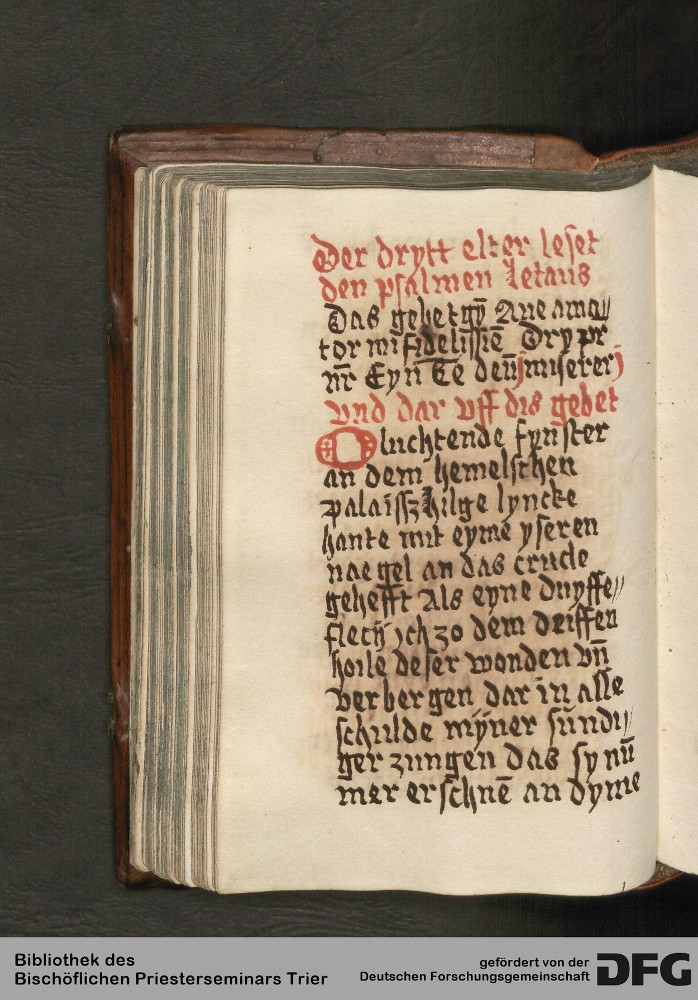 Der drytt elter leset
den psalmen Letatus
Das gebet gӱ Aue ama//
tor mi fidelissiē Dry pr̄
nr̄ Eyn Te deū j miserer j
vnd dar vff dis gebet
O luchtende fynster
an dem hemelschen
palaissz hilge lyncke
hante mit eyme yseren
naegel an das cruce
gehefft Als eyne duyffe//
flecij jch zo dem deiffen
hoile deser wonden vn̄
verbergen dar in alle
schulde mӱner sundi//
ger zungen das sy nū
mer erschnē an dyme
Bibliothek des
Bischöflichen Priesterseminars Trier
gefördert von der
Deutschen Forschungsgemeinschaft
DFG